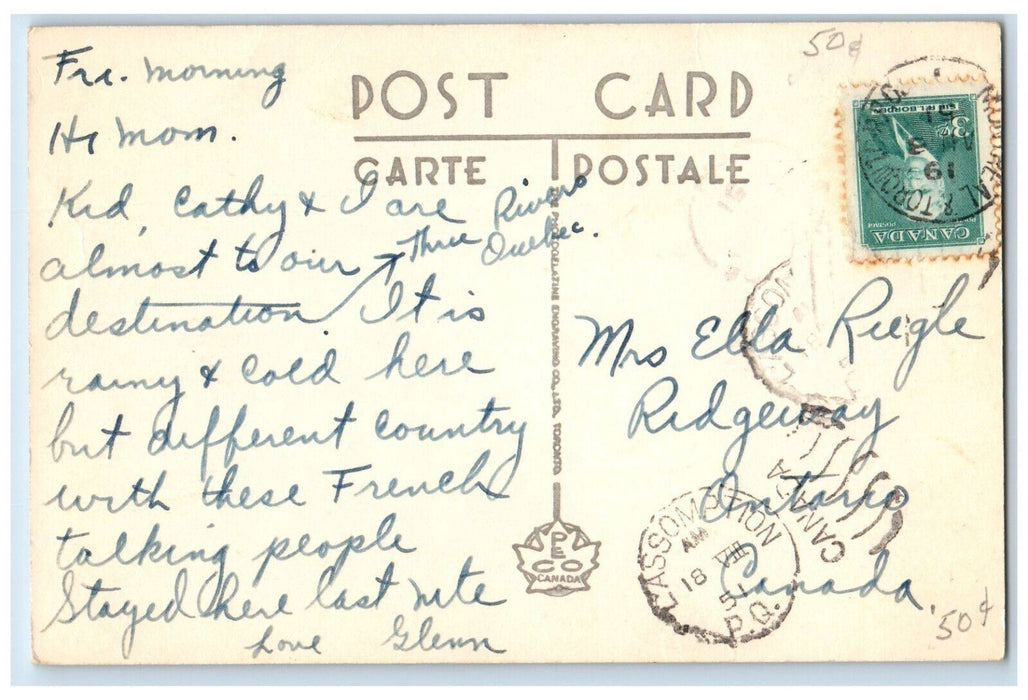 50¢
Fri. morning
POST CARD
Hi Mom.
CARTE POSTALE
Kid, Cathy & I are
almost to our
Three Rivers
Quebec.
destination. It is
rainy & cold here
but different country
with these French
talking people
Stayed here last nite
Love Glenn
PECO
CANADA
THE PHOTOGELATINE ENGRAVING CO., LTD. TORONTO.
CANADA
POSTAGE
POSTES
3¢
SIR R.L. BORDEN
MONTREAL & TORONTO
19
AU
51
Mrs Ella Riegle
Ridgeway
Ontario
Canada.
L'ASSOMPTION
AM
18 VIII
51
P.Q.
CANADA
50¢